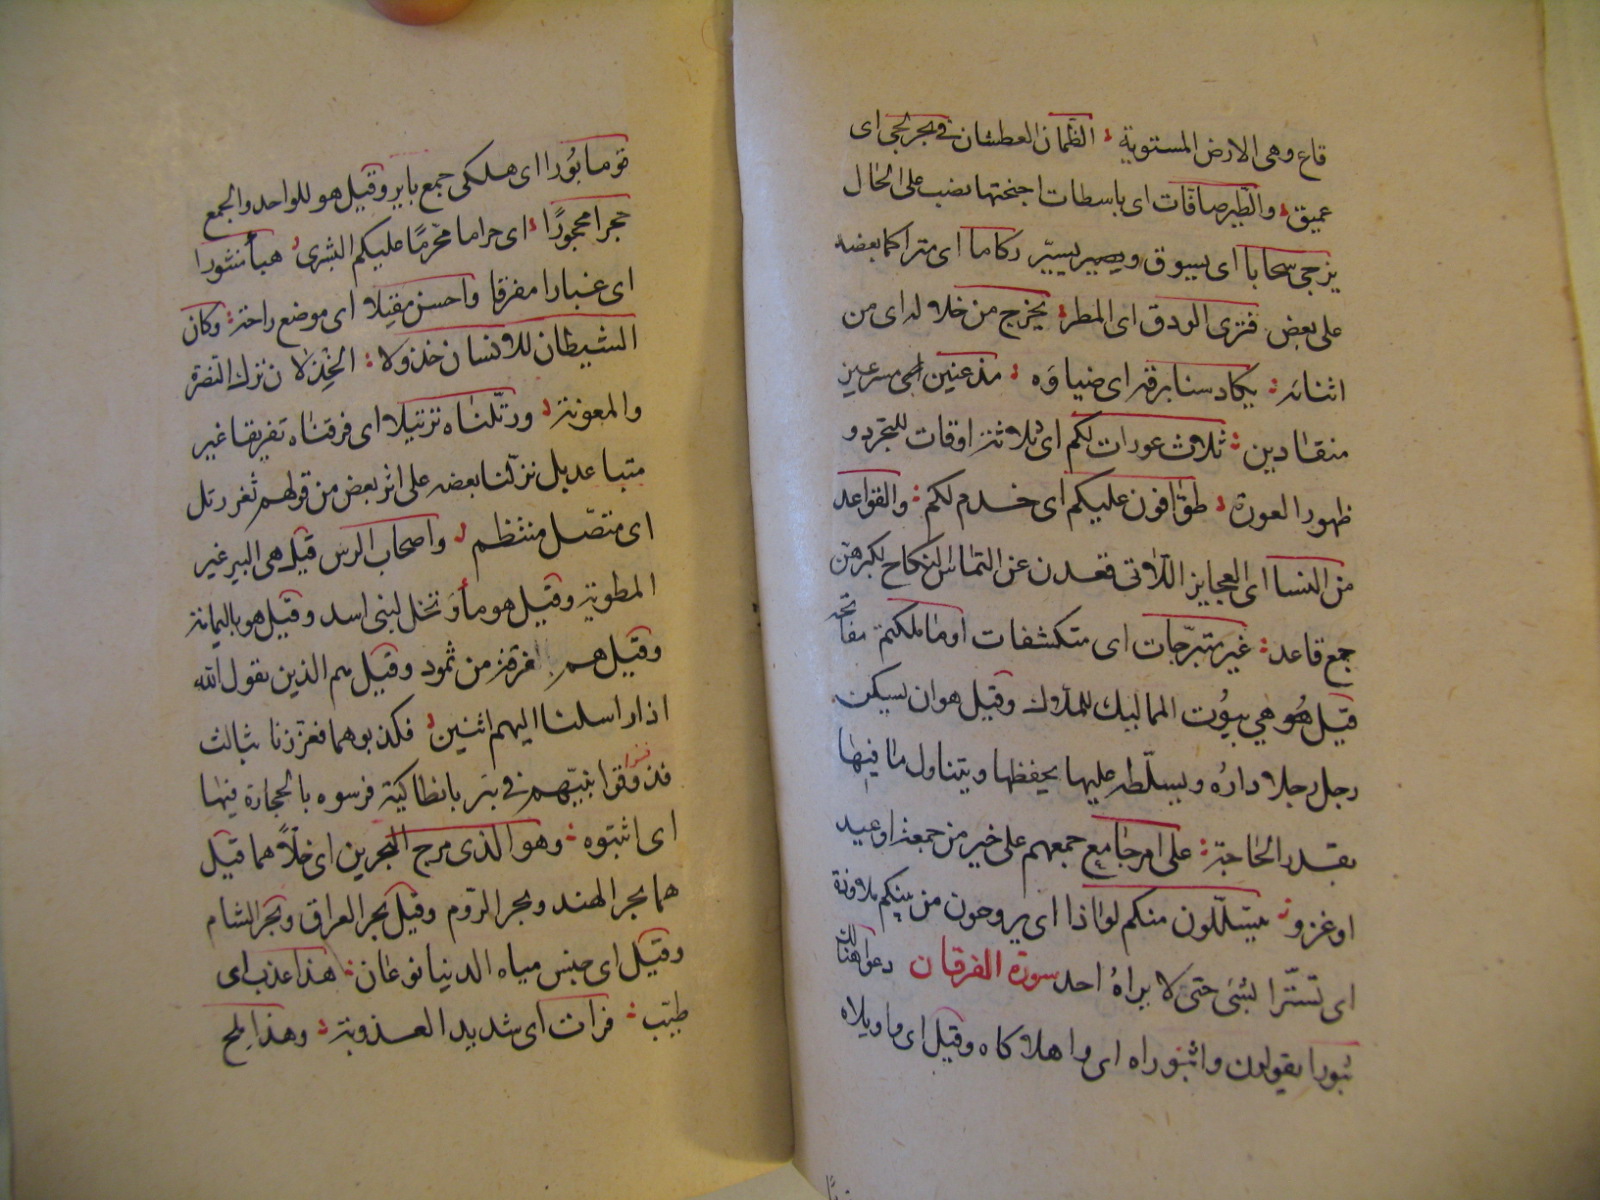 قاع وهى الارض المستوية الظمان العطشان فى بحر لجى اى
عميق والطير صافات اى باسطات اجنحتها نصب على الحال
يزجى سحابا اى يسوق ويصير يسيّر ركاما اى متراكما بعضه
على بعض فترى الودق اى المطر يخرج من خلاله اى من
اثنائه يكاد سنا برقه اى ضياؤه مذعنين اى مسرعين
منقادين ثلاث عورات لكم اى ثلاثة اوقات للتجرد و
ظهور العورة طوافون عليكم اى خدم لكم والقواعد
من النسا اى العجايز اللّاتى قعدن عن التماس النكاح لكبرهن
جمع قاعد غير متبرّجات اى متكشفات او ما ملكتم مفاتحه
قيل هو هي بيوت المماليك للملوك وقيل هو ان يسكن
رجل رجلا داره ويسلّطه عليها يحفظها ويتناول ما فيها
بقدر الحاجة على امر جامع جمعهم على خير من جمعة او عيد
او غزو يتسللون منكم لواذا اى يروحون من بينكم ملاوذة
اى تستّرا بشى حتى لا يراه احد سورة الفرقان دعوا هنالك
ثبورا يقولون واثبوراه اى وا هلاكاه وقيل اى وا ويلاه
قوما بُورا اى هلكى جمع باير وقيل هو للواحد والجمع
حجرا محجورًا اى حراما محرّمًا عليكم البشرى هبأ منثورا
اى غبارا مفرقا واحسن مقيلا اى موضع راحة وكان
الشيطان للانسان خذولا الخِذلان ترك النصرة
والمعونة ورتّلناه ترتيلا اى فرقناه تفريقا غير
متباعد بل نزلنا بعضه على اثر بعض من قولهم ثغر رتل
اى متصّل منتظم واصحاب الرس قيل هى البير غير
المطوية وقيل هو مأ ونخل لبنى اسد وقيل هو باليمامة
وقيل هم فرقة من ثمود وقيل هم الذين يقول الله
اذ ارسلنا اليهم اثنين فكذبوهما فعززنا بثالث
فذوقوا نبيّهم فى بئر بانطاكية فرسوه بالحجارة فيها
اى اثبتوه وهو الذى مرج البحرين اى خلّاهما قيل
هما بحر الهند وبحر الرّوم وقيل بحر العراق وبحر الشام
وقيل اى جنس مياه الدنيا نوعان هذا عذب اى
طيّب فرات اى شديد العذوبة وهذا ملح